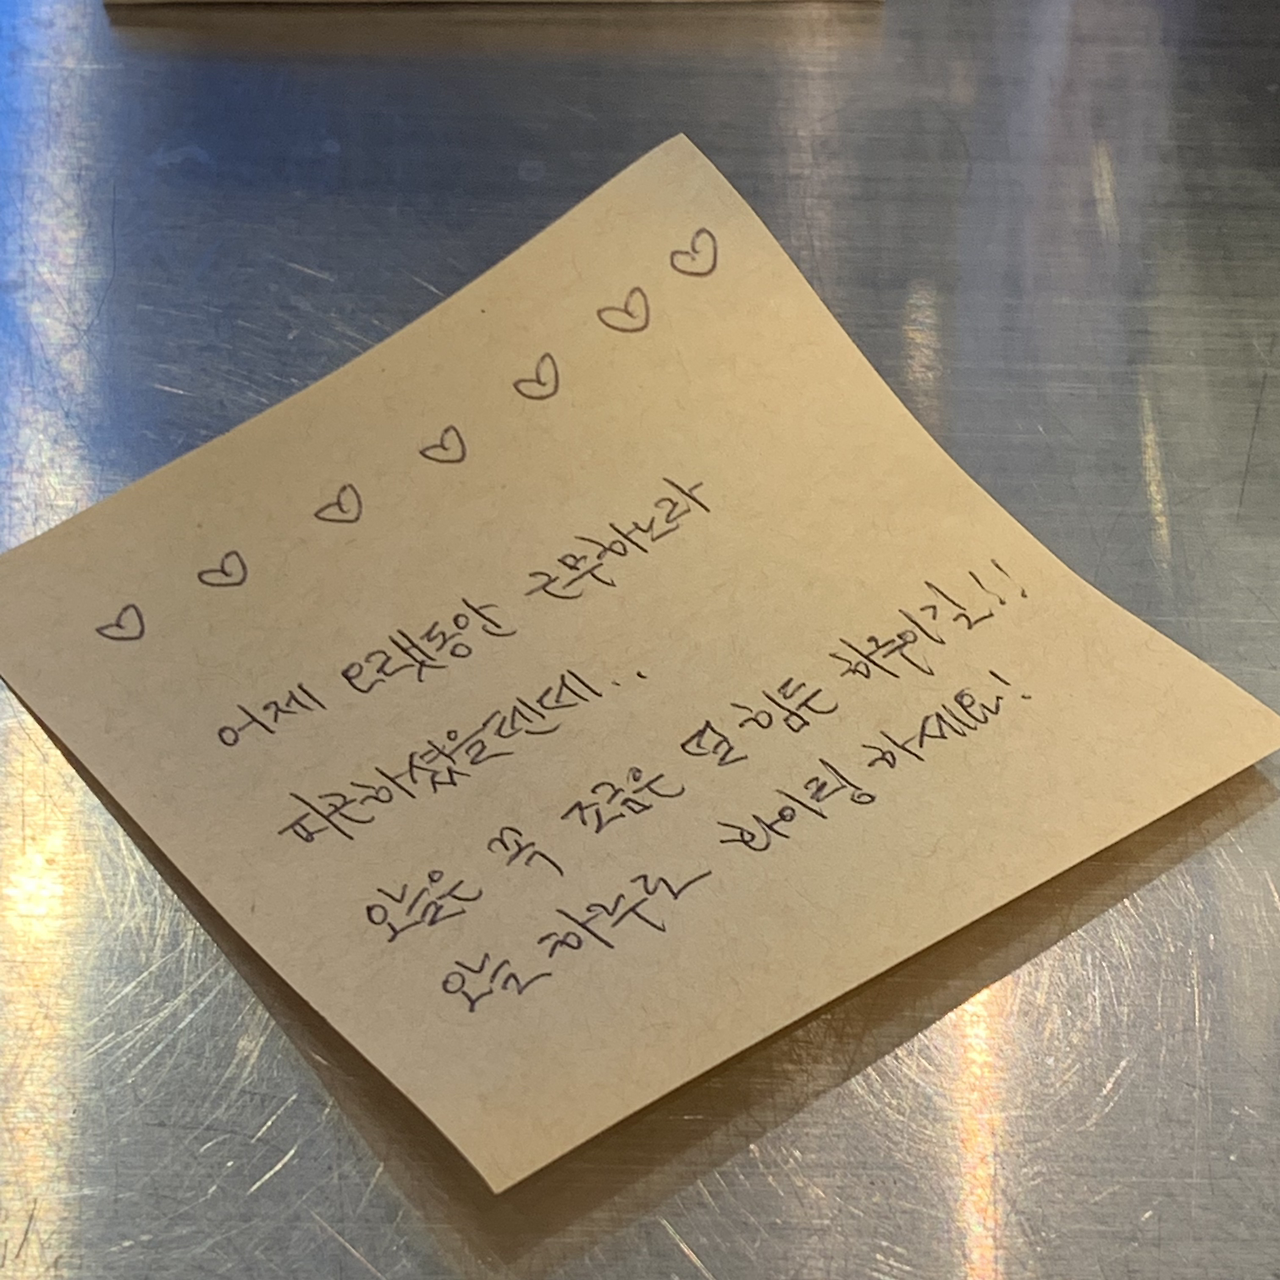 ♡ ♡ ♡ ♡ ♡ ♡ ♡
어제 오랫동안 근무하느라
피곤하셨을텐데..
오늘은 꼭 조금은 덜 힘든 하루이길!!
오늘 하루도 화이링 하세요!